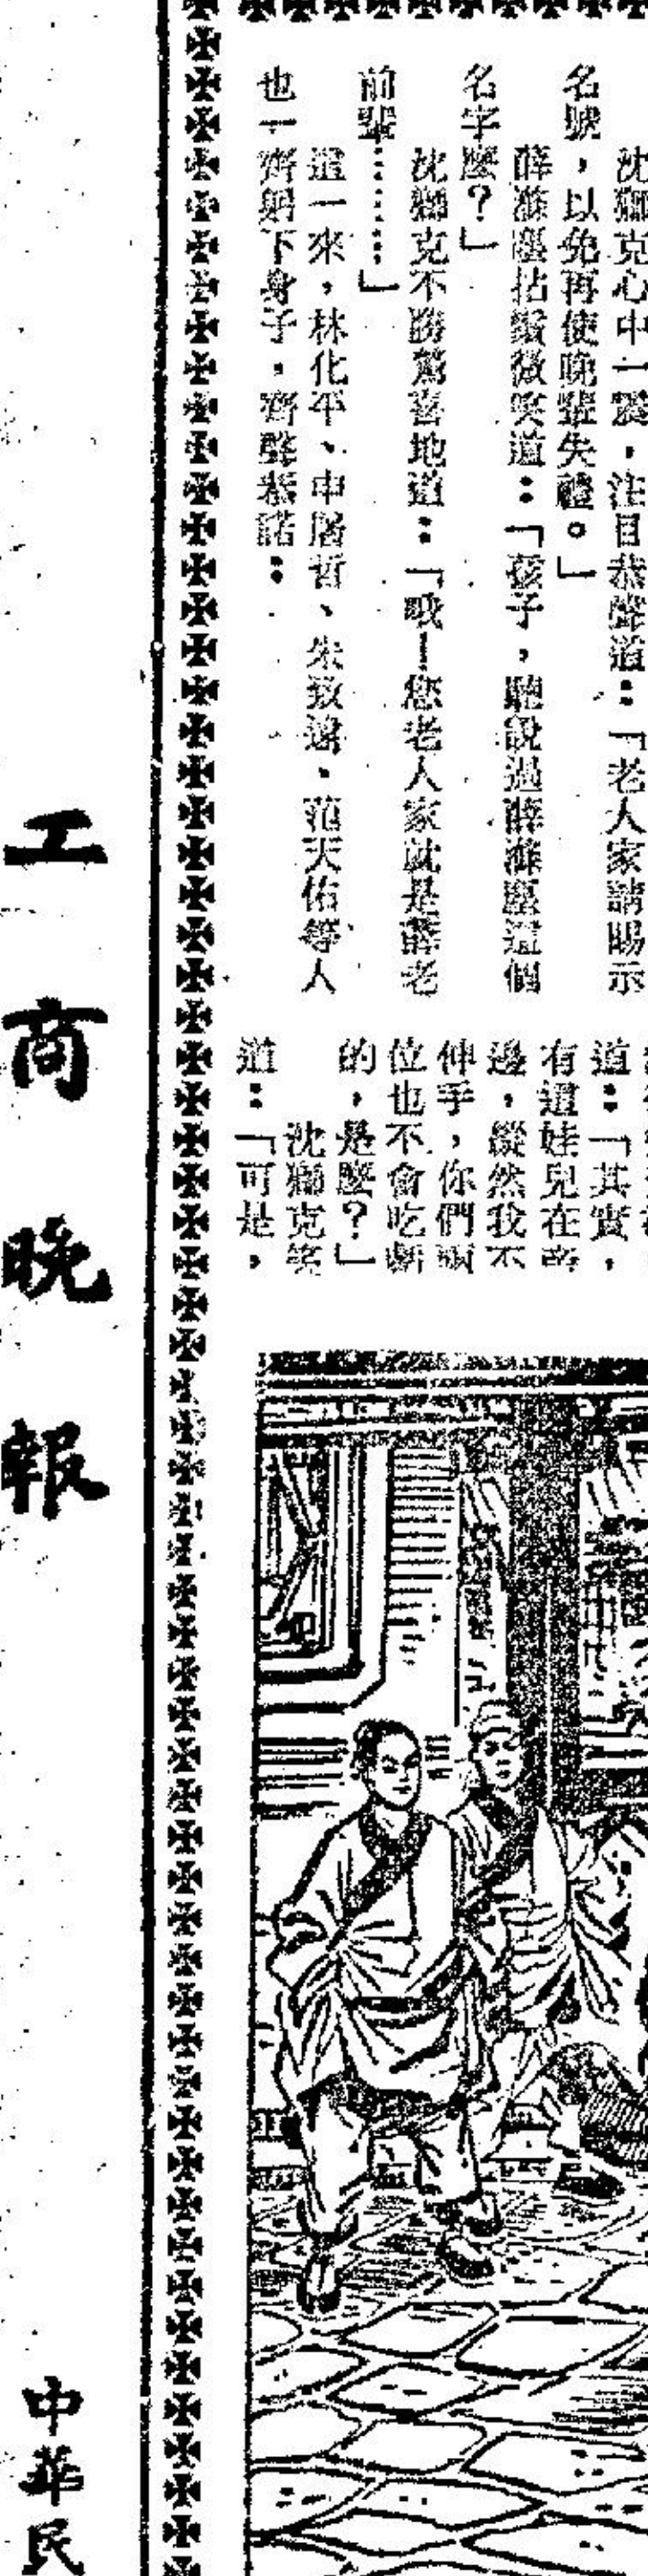 沈獅克心中一震，注目恭聲道：「老人家請賜示
名號，以免再使晚輩失禮。」
薛滌塵拈鬚微笑道：「孩子，聽說過薛滌塵這個
名字麼？」
沈獅克不勝驚喜地道：「哦－您老人家就是薛老
前輩………」
這一來，林化平、申屠哲、朱致遠、范天佑等人
也一齊躬下身子，齊聲恭諾：
道：「其實，
有這娃兒在旁
邊，縱然我不
伸手，你們兩
位也不會吃虧
的，是麼？」
沈獅克笑
道：「可是，
工商晚報
中華民